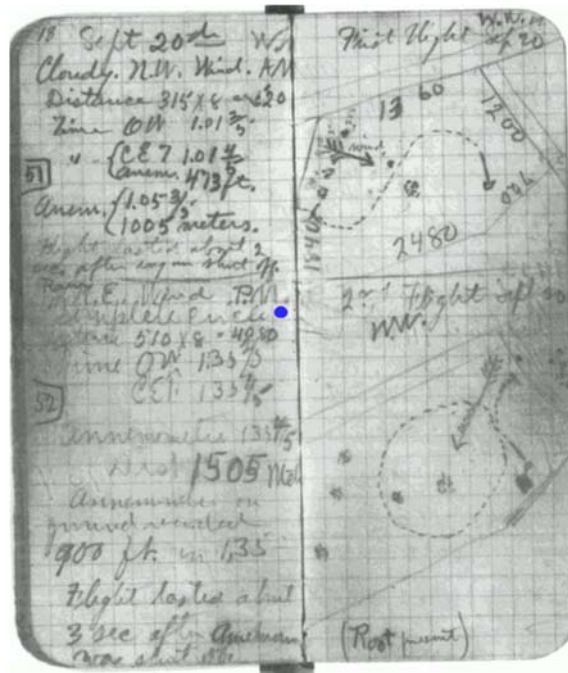 18 Sept 20th
Cloudy. N.W. Wind. AM
Distance 315 x 8 = 2520
Time OW 1.01 3/5
" { C.E.T. 1.01 4/5
51
anem. 473 ft.
Anem. { 1.05 3/5
1005 meters.
Flight lasted about 2
sec. after engine shut off.
N.E. Wind P.M.
Complete circle
510 x 8 = 4080
Time OW 1.35 2/5
C.E.T. 1.35 4/5
52
Annemometer 1.35 4/5
Dist 1505
Annemometer on
ground recorded
900 ft. in 1.35
Flight lasted about
3 sec after Anemom
was shut off.
First flight Sep 20
W.W.
13 60
1200
wind
400
1840
2480
2nd Flight Sept 20
W.W.
wind
(Root present)